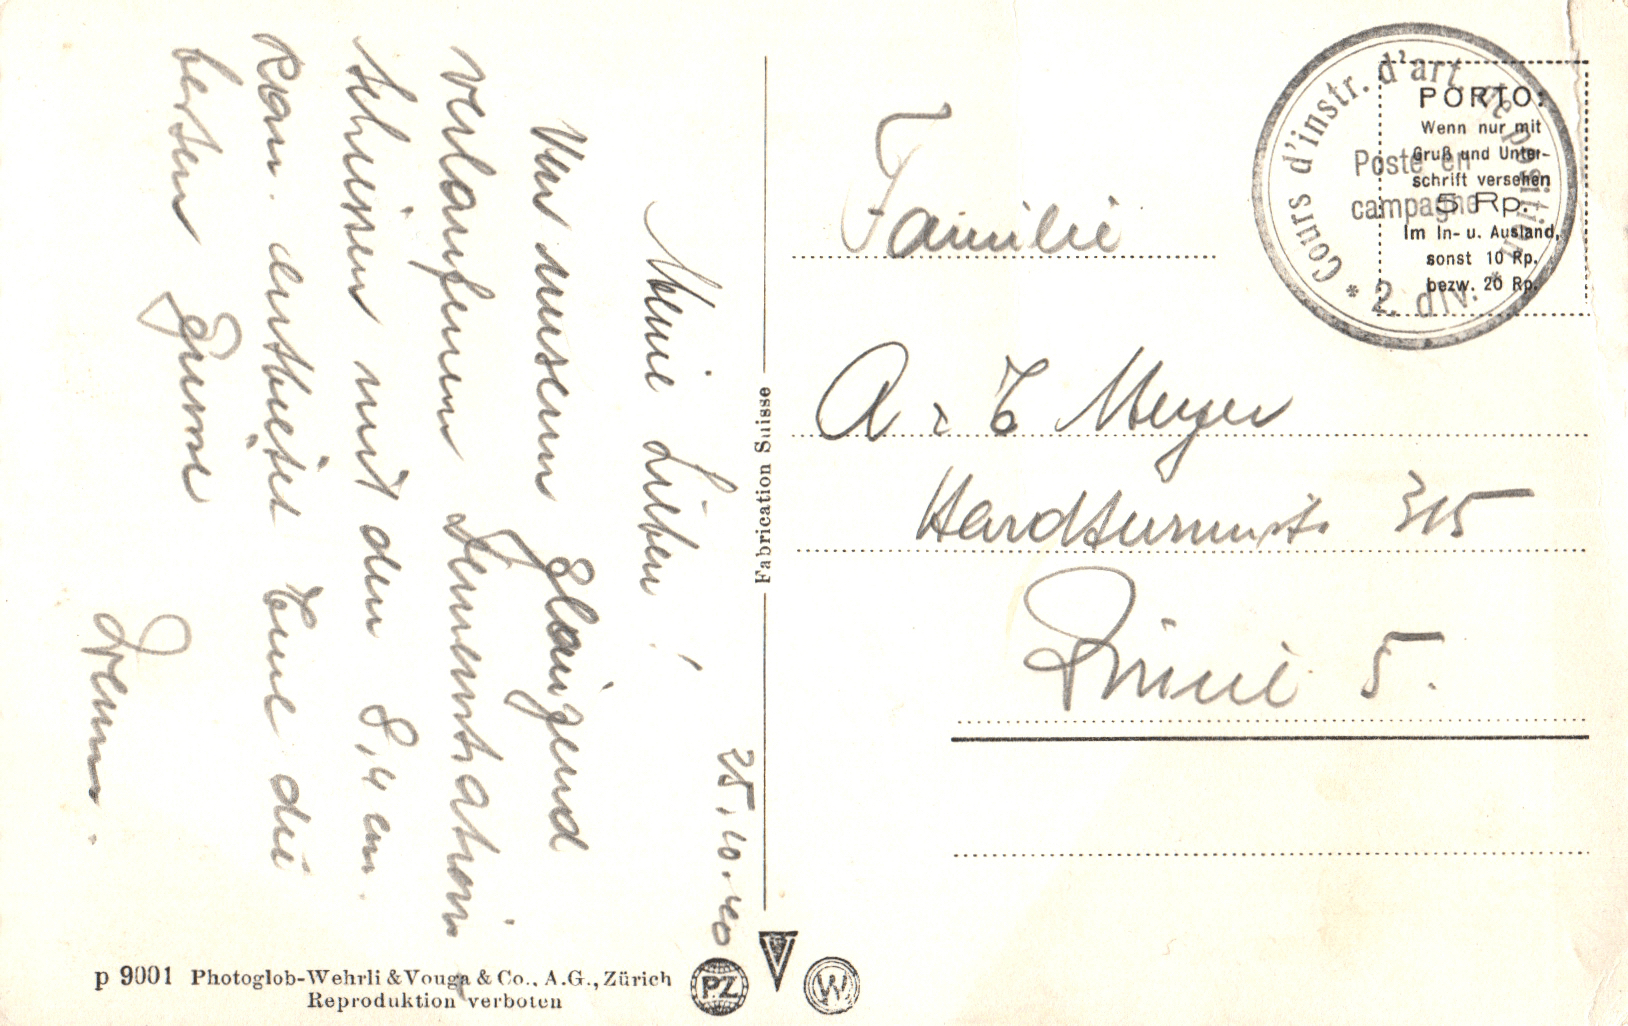 25.10.40
Meine Lieben!
Von unserem glänzend
verlaufenen Demonstrations
schiessen mit den 8,4 cm.
Kan. entbietet Euch die
besten Grüsse
Familie
A. Meyer
Hardturmstr. 315
Zürich 5.
Cours d'instr. d'art. de position
Poste en
campagne
* 2. div. *
PORTO:
Wenn nur mit
Gruß und Unter-
schrift versehen
5 Rp.
Im In- u. Ausland,
sonst 10 Rp.
bezw. 20 Rp.
Fabrication Suisse
p 9001 Photoglob-Wehrli & Vouga & Co., A.G., Zürich
Reproduktion verboten
PZ
V
W